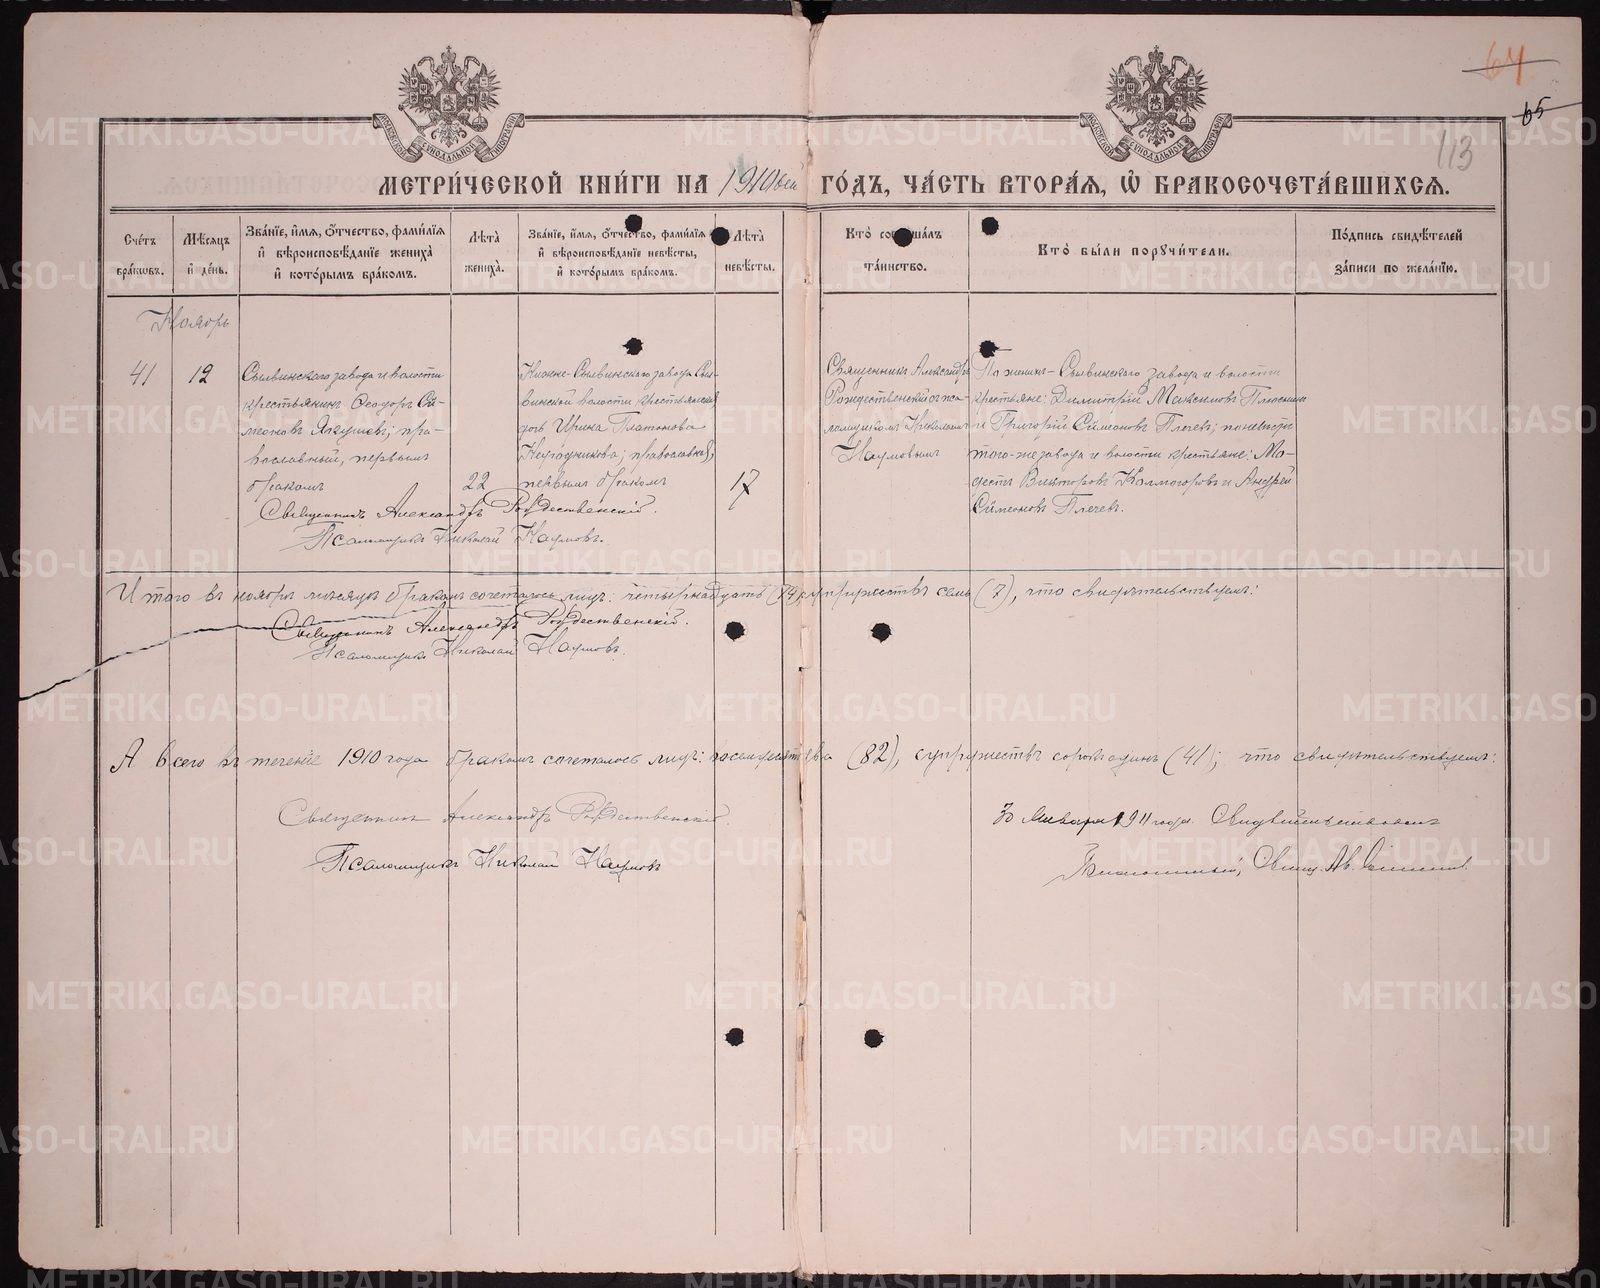 64
65
113
МОСКОВСКОЙ СѴНОДАЛЬНОЙ ТИПОГРАФІИ
МОСКОВСКОЙ СѴНОДАЛЬНОЙ ТИПОГРАФІИ
МЕТРИ́ЧЕСКОЙ КНИ́ГИ НА 1910вей ГО́ДЪ, ЧА́СТЬ ВТОРА́Я, Ѡ҆ БРАКОСОЧЕТА́ВШИХСЯ.
Сче́тъ бра́ковъ.
Мѣ́сяцъ и҆ де́нь.
Зва́нїе, и҆́мя, ѻ҆́тчество, фами́лїя и҆ вѣроисповѣ́данїе жениха̀ и҆ кото́рымъ бра́комъ.
Лѣ́та̀ жениха̀.
Зва́нїе, и҆́мя, ѻ҆́тчество, фами́лїя и҆ вѣроисповѣ́данїе невѣ́сты, и҆ кото́рымъ бра́комъ.
Лѣ́та̀ невѣ́сты.
Кто̀ соверша́лъ та́инство.
Кто̀ бы́ли порꙋчи́тели.
По́дпись свидѣ́телей за́писи по жела́нїю.
Ноябрь
41
12
Сылвинскаго завода и волости
крестьянинъ Ѳеодоръ Си-
меоновъ Якушевъ; пра-
вославный, первымъ
бракомъ
22
Нижне-Сылвинскаго завода Сыл-
винской волости крестьянская
дочь Ирина Платонова
православная;
первымъ бракомъ
17
Священникъ Александръ
Рождественскій съ пса-
ломщикомъ Николаемъ
Наумовымъ
По женихѣ - Сылвинскаго завода и волости
крестьяне: Димитрій Максимовъ Плюснинъ
и Григорій Симеоновъ Плечевъ; по невѣстѣ
того-же завода и волости крестьяне: Мо-
дестъ Викторовъ Колмогоровъ и Андрей
Симеоновъ Плечевъ.
Священникъ Александръ Рождественскій.
Псаломщикъ Николай Наумовъ.
Итого въ ноябрѣ мѣсяцѣ бракомъ сочеталось лицъ: четырнадцать (14), супружествъ семь (7), что свидѣтельствуемъ:
Священникъ Александръ Рождественскій.
Псаломщикъ Николай Наумовъ.
А всего въ теченіе 1910 года бракомъ сочеталось лицъ: восемдесятъ два (82), супружествъ сорокъ одинъ (41); что свидѣтельствуемъ:
Священникъ Александръ Рождественскій.
Псаломщикъ Николай Наумовъ
30 Января 1911 года. Свидѣтельствовалъ
Благочинный, Свящ.
METRIKI.GASO-URAL.RU